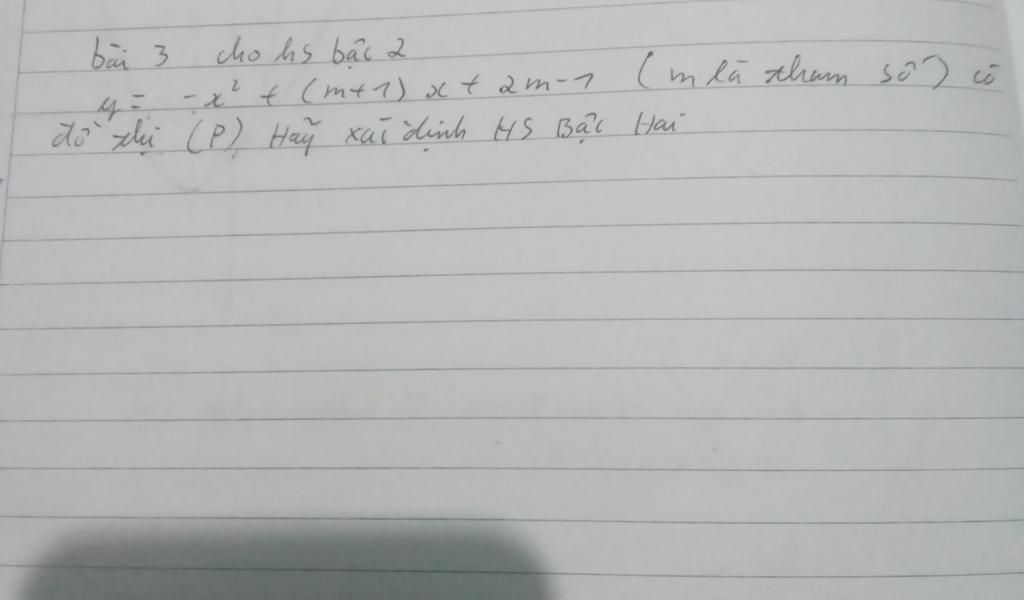 bài 3 cho hs bậc 2
y = -x² + (m+1) x + 2m-1 (m là tham số) có
đồ thị (P). Hãy xác định HS Bậc Hai